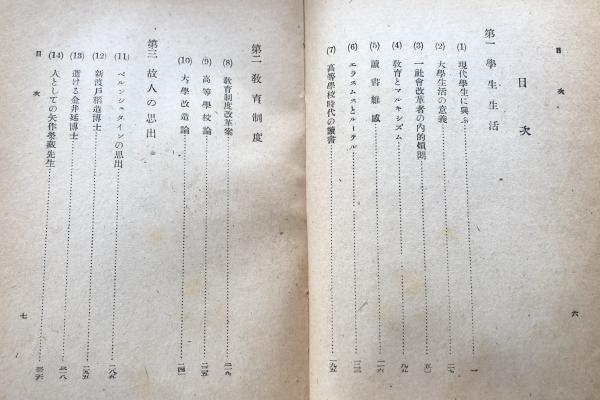 目次
目次
第一 學生生活
(1) 現代學生に與ふ 一
(2) 大學生活の意義
(3) 一社會改革者の內的煩悶
(4) 教育とマルキシズム
(5) 讀書雜感
(6) エラスムスとルーテル
(7) 高等學校時代の讀書
六
第二 教育制度
(8) 教育制度改革案
(9) 高等學校論
(10) 大學改造論
第三 故人の思出
(11) ベルンシュタインの思出
(12) 新渡戶稻造博士
(13) 逝ける金井延博士
(14) 人としての矢作榮藏先生
目次
七